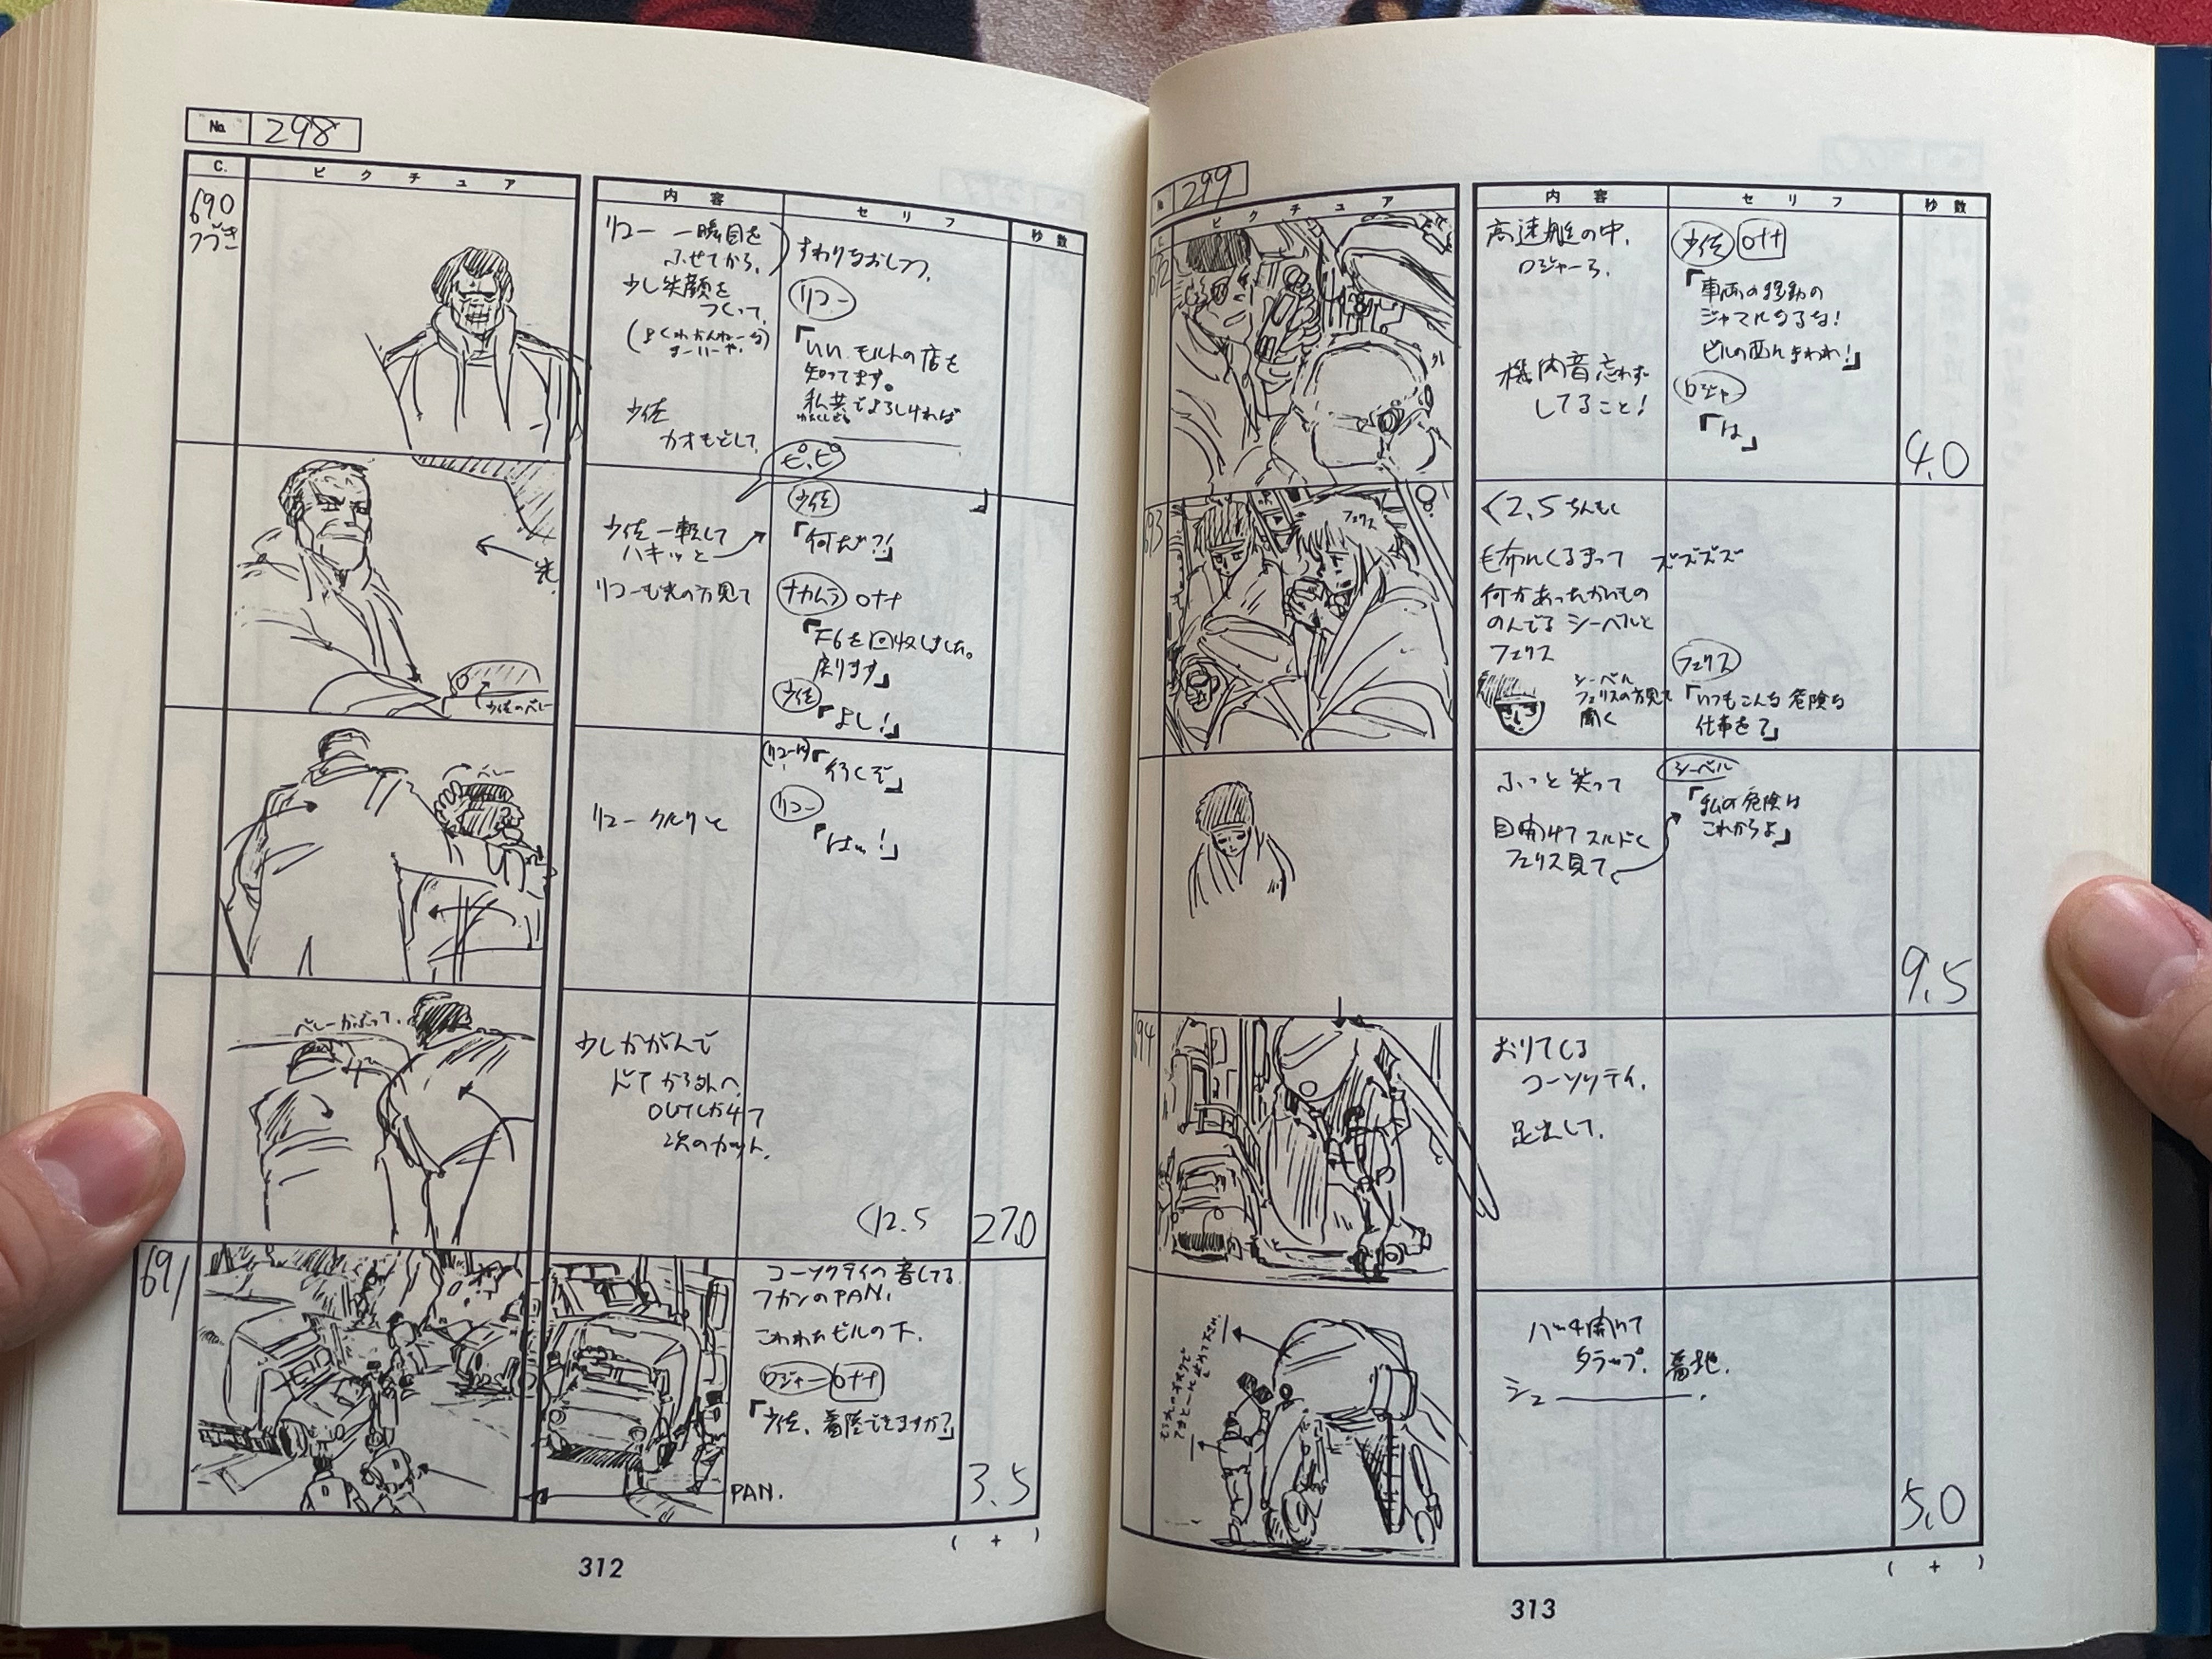 No. 298
C. ピクチュア 内容 セリフ 秒数
690
つづき
リコー 一瞬目を
ふせてから、
少し笑顔を
つくって、
(よくわかんねーな
まーいーや。)
少佐
カオもどして、
すわりなおしつつ、
リコー
「いい モルトの店を
知ってます。
私共でよろしければ
わたくしども
ピ、ピ
」
少佐一転して
ハキッと
リコーも光の方見て
光
少佐のベレー
少佐
「何だ?!」
ナカムラ OFF
「F6を回収しました。
戻ります」
少佐
「よし!」
ベレー
リコー クルリと
「行くぞ」
リコー
「はっ!」
ベレーかぶって、
少しかがんで
ドアから外へ
OUTしかけて
次のカット、
(12.5
27.0
691
コーソクテイの音してる
フカンのPAN、
こわれたビルの下、
ロジャー OFF
「少佐、着陸できますか?」
PAN.
3.5
( + )
312
299
ピクチュア 内容 セリフ 秒数
高速艇の中、
ロジャーら、
機内音忘れず
してること!
少佐 OFF
「車両の移動の
ジャマになるな!
ビルの西へまわれ!」
ロジャー
「は」
4.0
(2.5 ちんもく
毛布にくるまって
何かあったかいもの
のんでる シーベルと
フェリス
ズズズズ
フェリス
シーベル
フェリスの方見て
聞く
フェリス
「いつもこんな危険な
仕事を?」
ふっと笑って
目開けてスルドく
フェリス見て
シーベル
「私の危険は
これからよ」
9.5
おりてくる
コーソクテイ、
足出して、
ハッチ開いて
タラップ、着地、
シュー
5.0
( + )
313